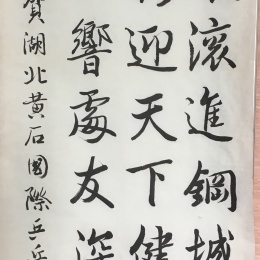 滚進鋼城
迎天下健
響處友深
賀湖北黄石國際乒乓